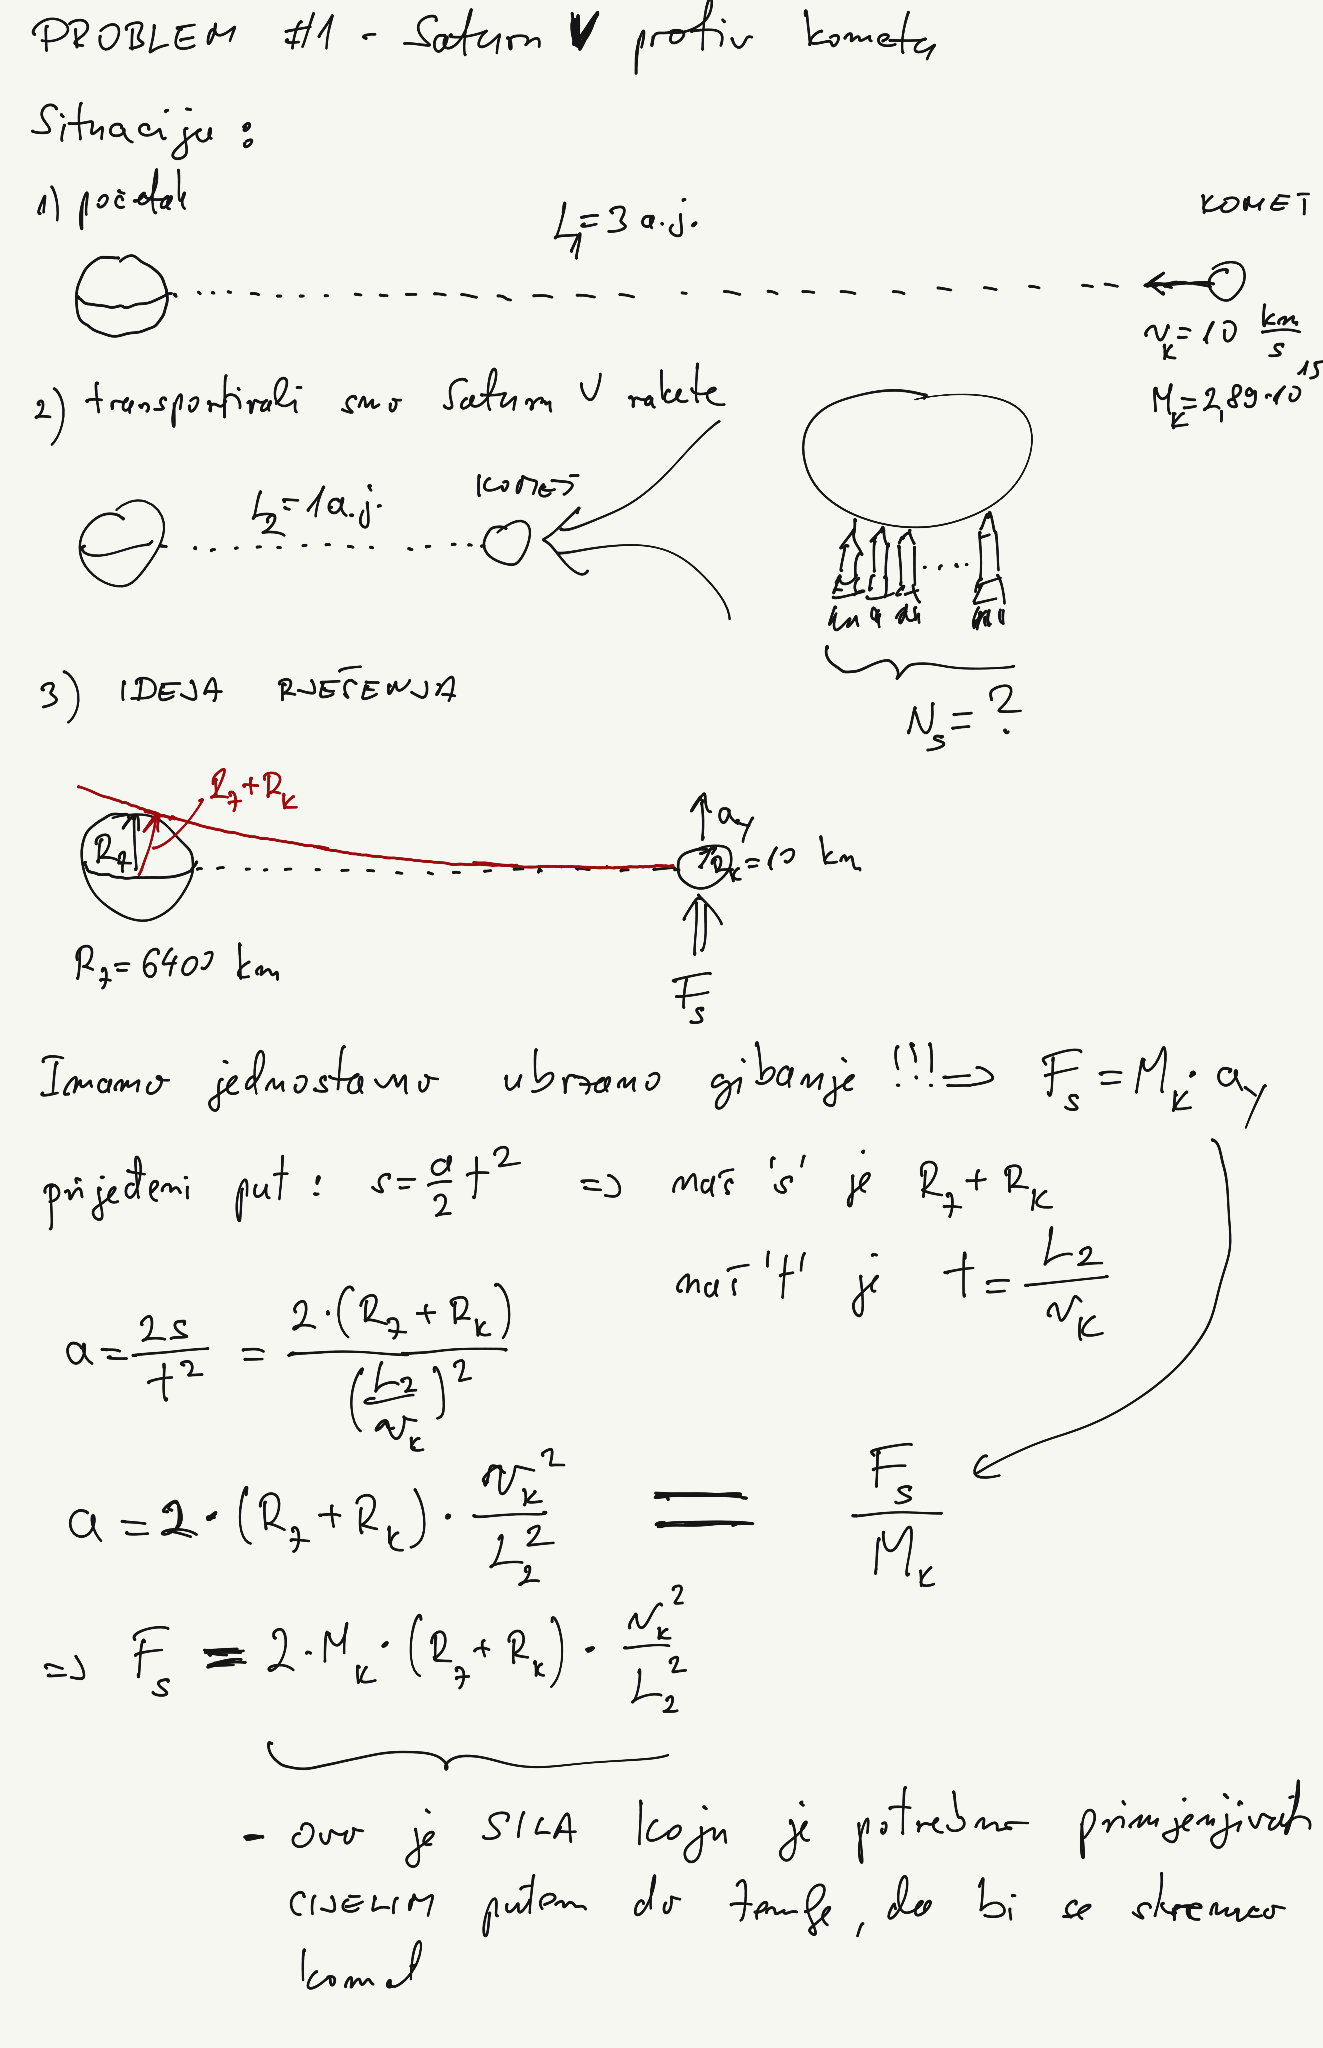 PROBLEM #1 - Saturn V protiv kometa
Situacija:
1) početak
L₁=3 a.j.
KOMET
v_k=10 km/s
M_k=2,89·10¹⁵
2) transportirali smo Saturn V rakete
L₂=1a.j.
KOMET
N_s=?
3) IDEJA RJEŠENJA
R_z+R_k
R_z
a_y
R_k=10 km
R_z=6400 km
F_s
Imamo jednostavno ubrzano gibanje !!! => F_s=M_k·a_y
prijeđeni put: s=a/2 t² => naš 's' je R_z+R_k
naš 't' je t=L₂/v_k
a=2s/t² = 2·(R_z+R_k)/(L₂/v_k)²
a=2·(R_z+R_k)·v_k²/L₂² = F_s/M_k
=> F_s = 2·M_k·(R_z+R_k)·v_k²/L₂²
- ovo je SILA koju je potrebno primjenjivati
CIJELIM putem do zemlje, da bi se skrenuo
komet